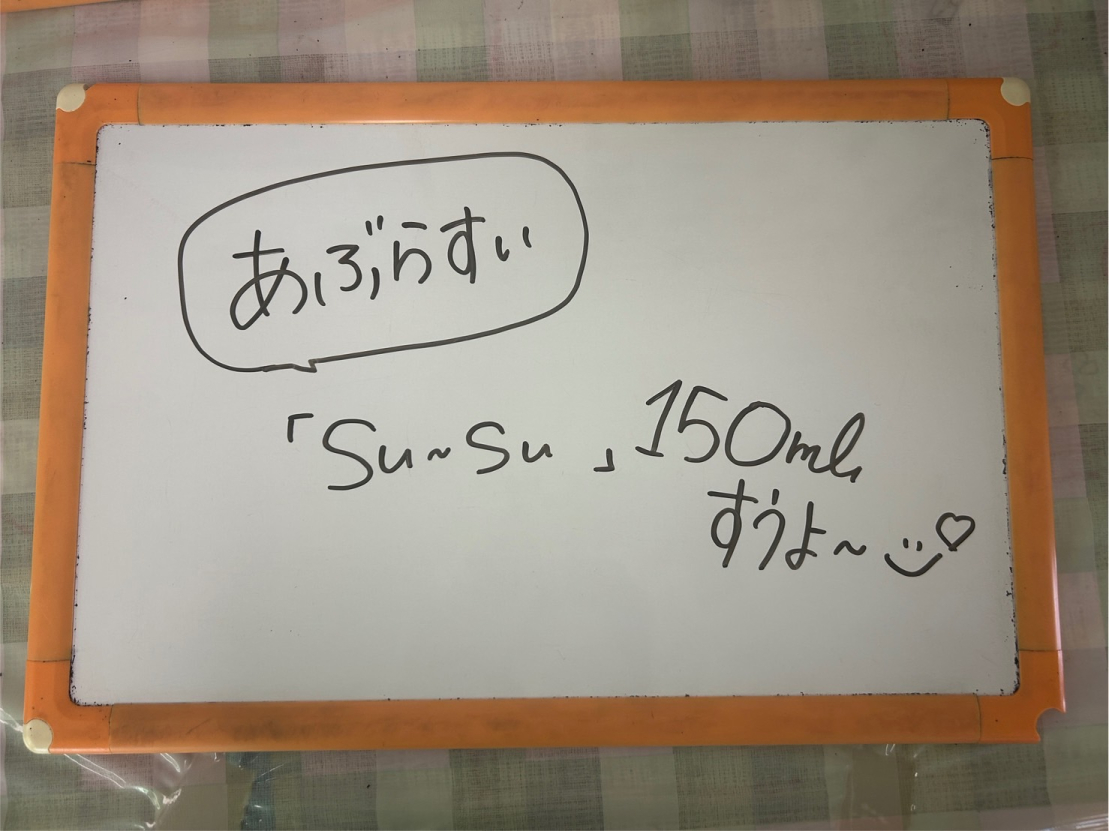 あぶらすい
「Su~Su」150ml
すうよ~